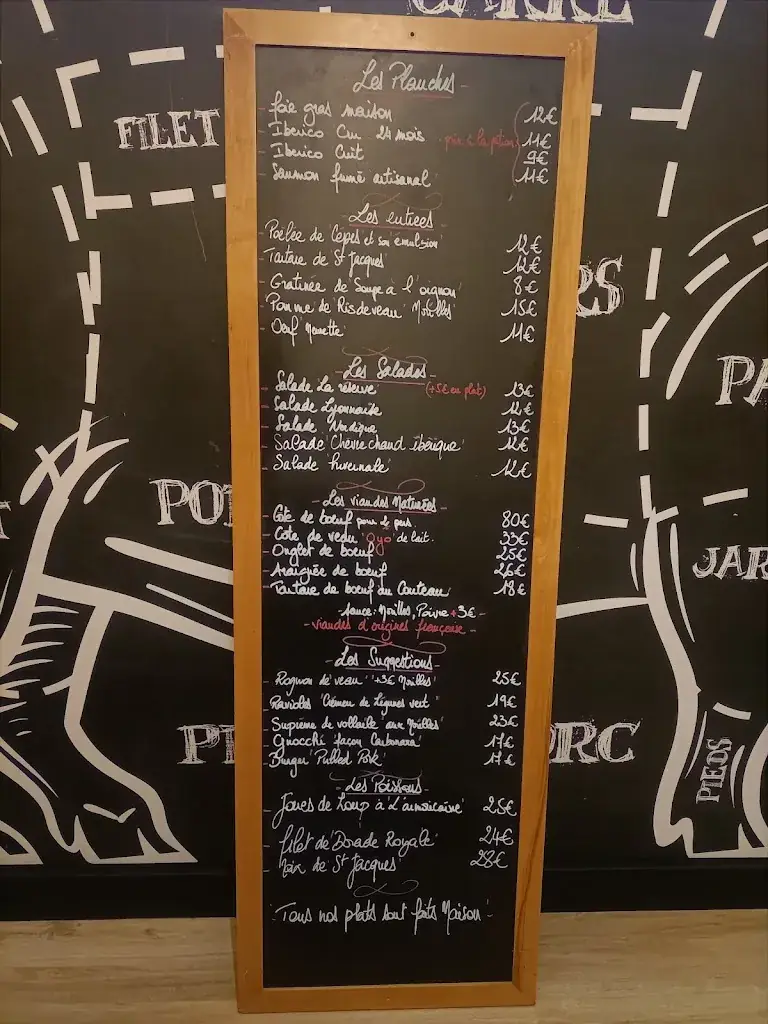 CARRÉ
FILET
RS
PA
POI
JAR
PI
ORC
PIEDS
Les Planches
- foie gras maison 12€
- Iberico Cru 24 mois 11€
- Iberico Cuit 9€
- Saumon fumé artisanal 11€
- Les entrées -
- Poêlée de Cèpes et son émulsion 12€
- Tartare de St Jacques 12€
- Gratinée de Soupe à l'oignon 8€
- Pomme de Ris de veau Morilles 15€
- Oeuf Meurette 11€
- Les Salades -
- Salade La réserve (+5€ en plat) 13€
- Salade Lyonnaise 12€
- Salade Nordique 13€
- Salade Chèvre chaud ibérique 12€
- Salade hivernale 12€
- Les viandes Maturées
- Côte de boeuf pour 2 pers. 80€
- Cote de veau "Oyo" de lait. 33€
- Onglet de boeuf 25€
- Araignée de boeuf 26€
- Tartare de boeuf au Couteau 18€
- sauce: Morilles, Poivre +3€ -
- viandes d'origines française -
- Les Suggestions -
- Rognon de veau "+3€ Morilles" 25€
- Ravioles "Crémeu de Légumes vert" 19€
- Suprême de volaille aux Morilles 23€
- Gnocchi façon Carbonara 17€
- Burger Pulled Pork 17€
- Les Poissons -
- Joues de Loup à L'armoricaine 25€
- filet de Dorade Royale 24€
- Noix de St Jacques 28€
- Tous nos plats sont faits Maison -